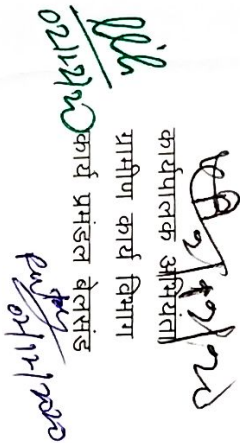 कार्यपालक अभियंता
ग्रामीण कार्य विभाग
कार्य प्रमंडल बेलसंड
02/12/20
02/12/2020